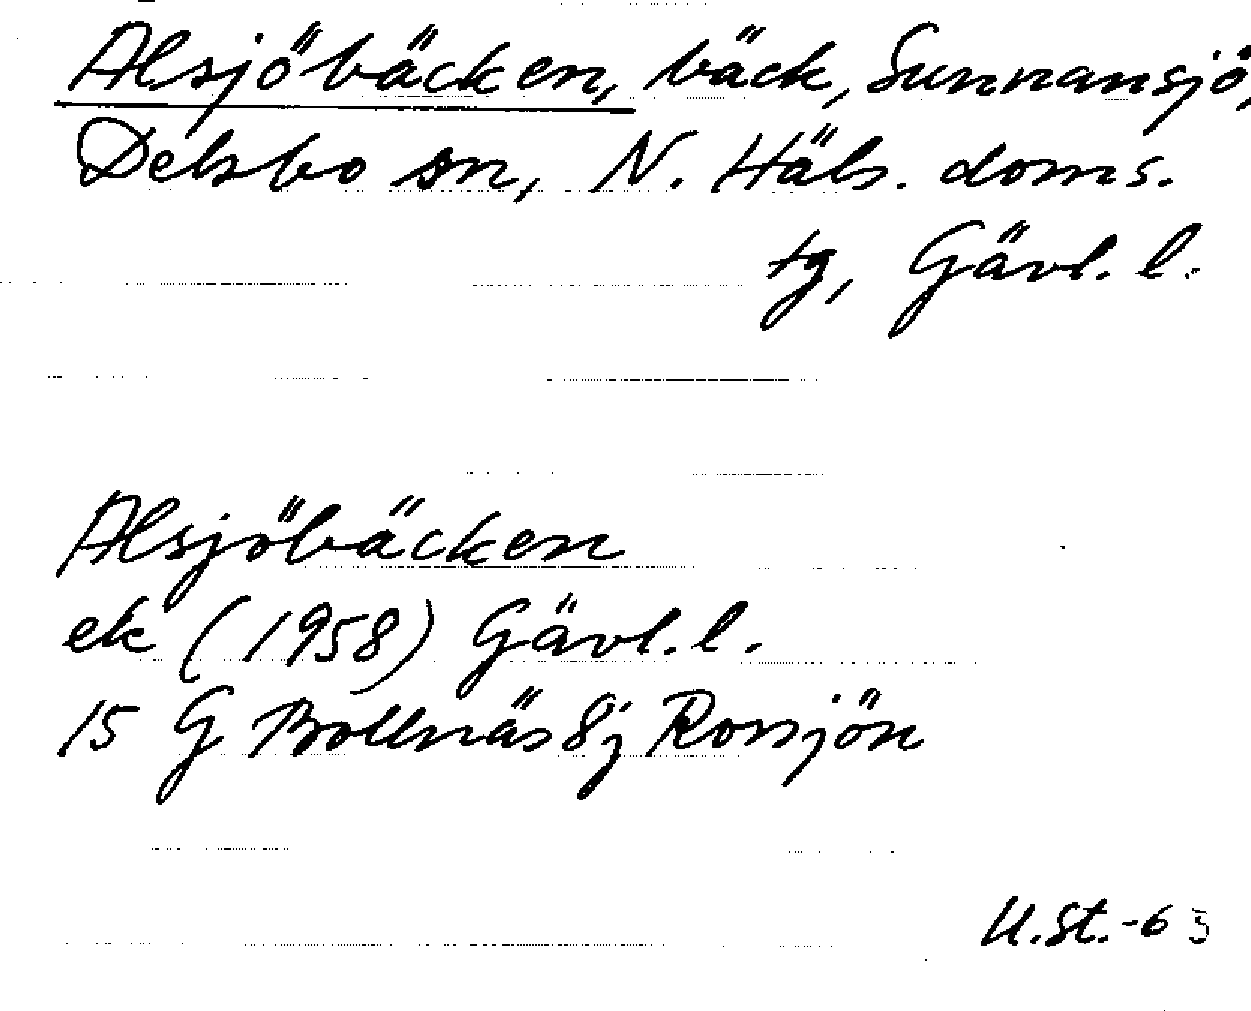 Alsjöbäcken, bäck, Sunnansjö,
Delsbo sn, N. Häls. doms.
tg, Gävl. l.
Alsjöbäcken
ek (1958) Gävl. l.
15 G Bollnäs 8j Rossjön
U.St.-63